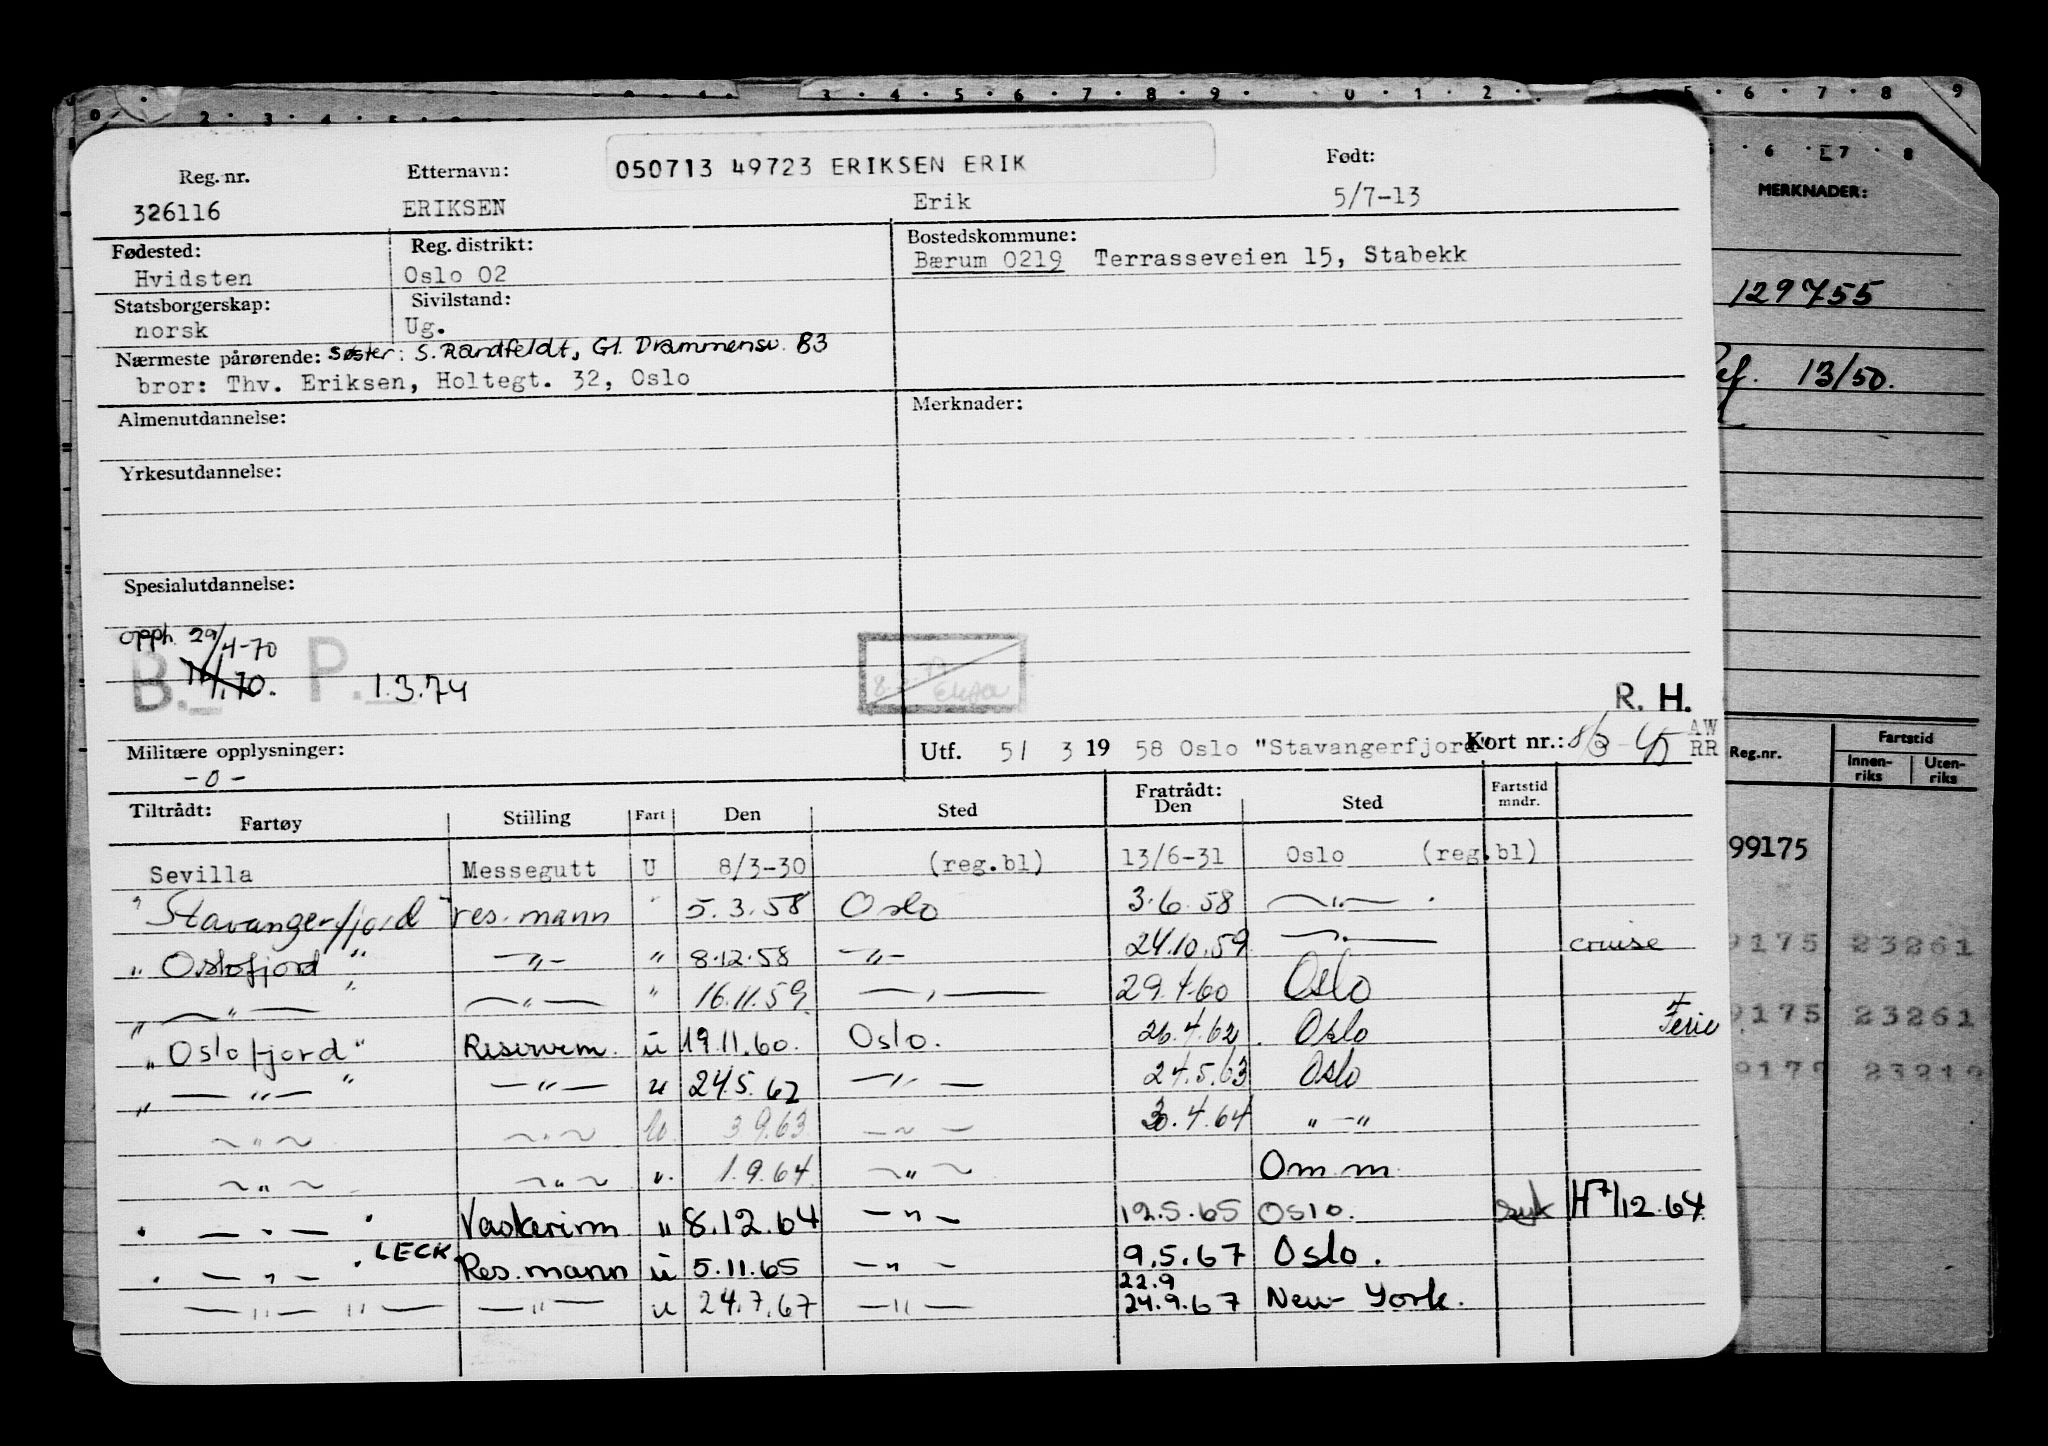 050713 49723 ERIKSEN ERIK
Reg. nr. Etternavn: Født:
326116 ERIKSEN Erik 5/7-13
Fødested: Reg. distrikt: Bostedskommune:
Hvidsten Oslo 02 Bærum 0219 Terrasseveien 15, Stabekk
Statsborgerskap: Sivilstand:
norsk Ug.
Nærmeste pårørende: Søster: S. Randfeldt, Gl. Drammensv. 83
bror: Thv. Eriksen, Holtegt. 32, Oslo
Almenutdannelse: Merknader:
Yrkesutdannelse:
Spesialutdannelse:
Opph. 29/4-70
B. P. 1.3.74
R. H.
Militære opplysninger: Utf. 5/ 3 19 58 Oslo "Stavangerfjord" Kort nr.: AW
- 0 - RR
Tiltrådt: Fratrådt: Fartstid
Fartøy Stilling Fart Den Sted Den Sted mndr.
Sevilla Messegutt U 8/3-30 (reg.bl) 13/6-31 Oslo (reg.bl)
"Stavangerfjord" res. mann " 5.3.58 Oslo 3.6.58 —"—
"Oslofjord" —"— " 8.12.58 —"— 24.10.59 —"— cruise
" —"— " —"— " 16.11.59 —"— 29.4.60 Oslo
"Oslofjord" Reservem. u 19.11.60. Oslo. 26.4.62. Oslo Ferie
" —"— " —"— u 24.5.62 —"— 24.5.63 Oslo
—"— —"— u. 3.9.63 —"— 30.4.64 " — "
—"— —"— u. 1.9.64. —"— Om m
" —"— " Vaskerim " 8.12.64 —"— 12.5.65 Oslo. syk H 7/12.64.
" —"— " LECK. Res. mann u 5.11.65 —"— 9.5.67 Oslo.
22.9
—"— "— —"— u 24.7.67 —"— 24.9.67 New York.
MERKNADER:
129755
13/50.
Reg.nr. Fartstid
Innen-riks Uten-riks
99175
9175 23261
9175 23261